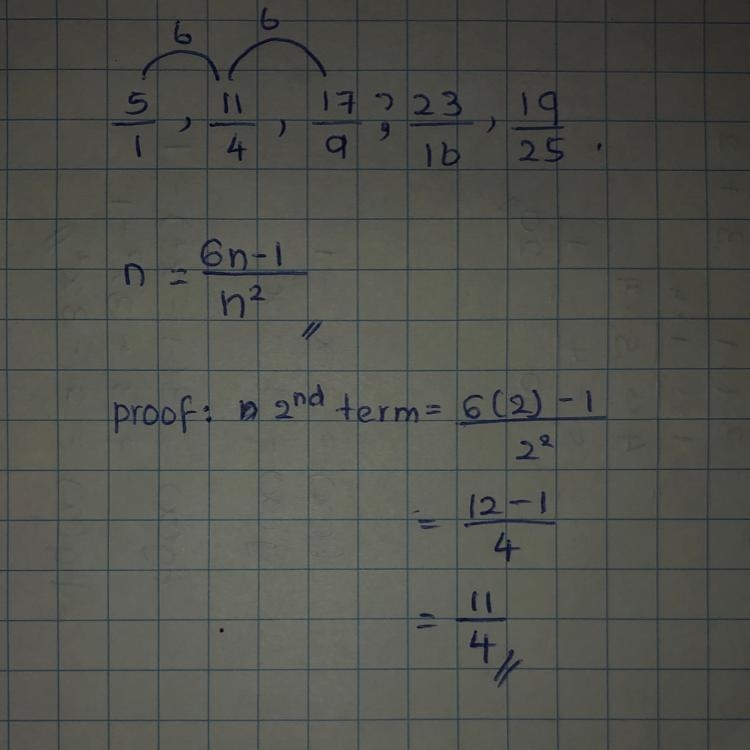 6 6
5/1 , 11/4 , 17/9 , 23/16 , 19/25 .
n = 6n-1/n²
proof: 2nd term = 6(2) - 1/2²
= 12 - 1/4
= 11/4